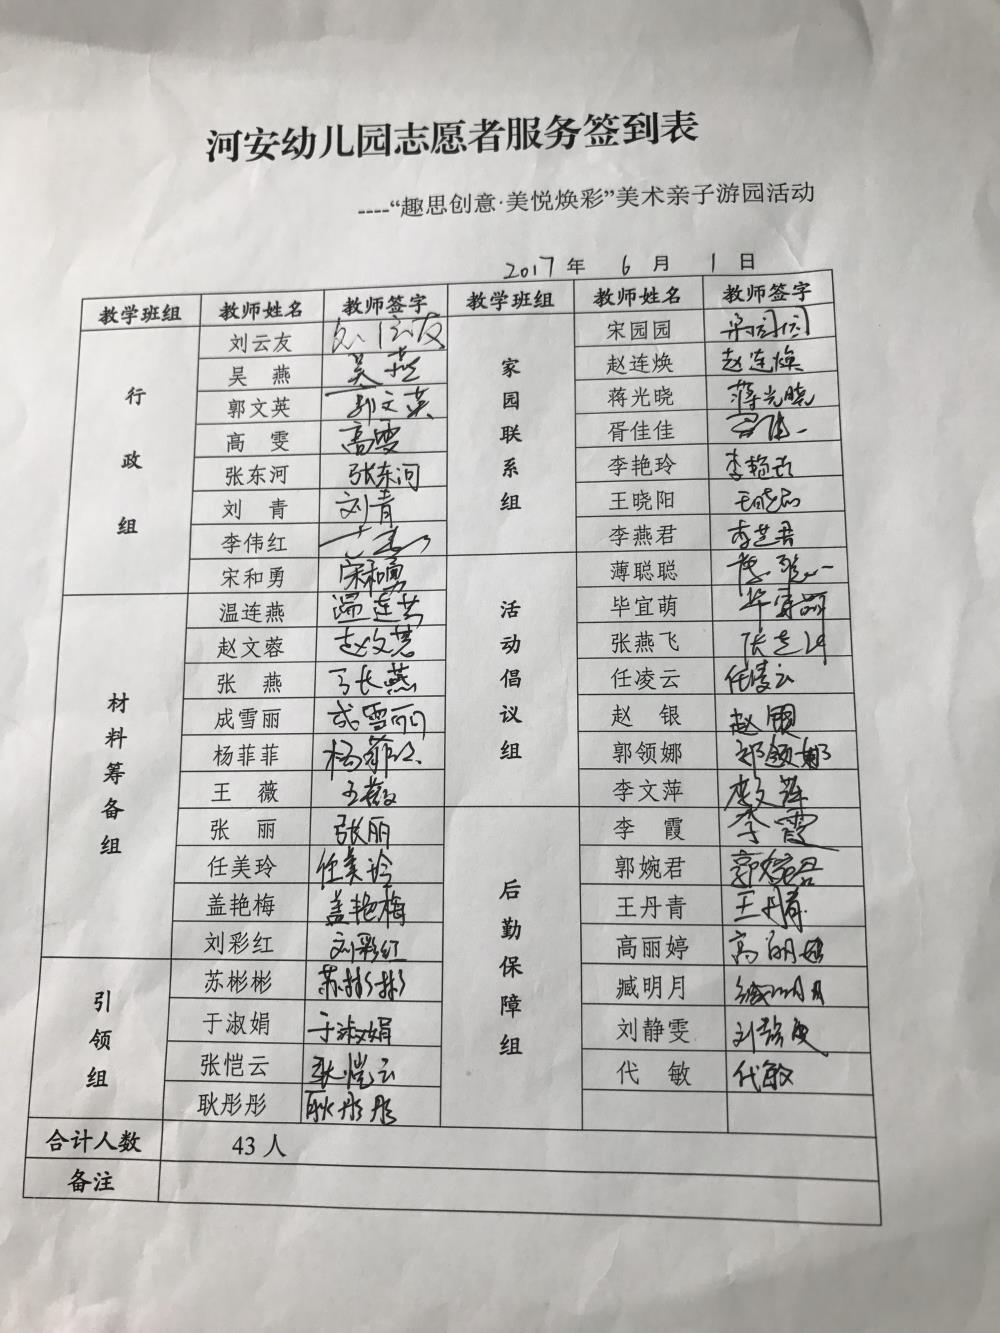 河安幼儿园志愿者服务签到表
----“趣思创意·美悦焕彩”美术亲子游园活动
2017 年 6 月 1 日
教学班组 教师姓名 教师签字 教学班组 教师姓名 教师签字
行政组 家园联系组
刘云友 宋园园
吴 燕 吴燕 赵连焕 赵连焕
郭文英 郭文英 蒋光晓 蒋光晓
高 雯 高雯 胥佳佳
张东河 张东河 李艳玲 李艳玲
刘 青 刘青 王晓阳 王晓阳
李伟红 李燕君 李艺君
宋和勇 宋和勇 薄聪聪
材料筹备组 活动倡议组
温连燕 温连燕 毕宜萌
赵文蓉 赵文蓉 张燕飞
张 燕 张燕 任凌云 任凌云
成雪丽 成雪丽 赵 银 赵银
杨菲菲 杨菲菲 郭领娜 郭领娜
王 薇 王薇 李文萍 李文萍
张 丽 张丽 李 霞 李霞
后勤保障组
任美玲 任美玲 郭婉君 郭婉君
盖艳梅 盖艳梅 王丹青 王丹青
刘彩红 刘彩红 高丽婷 高丽婷
引领组
苏彬彬 苏彬彬 臧明月 臧明月
于淑娟 于淑娟 刘静雯 刘静雯
张恺云 张恺云 代 敏 代敏
耿彤彤 耿彤彤
合计人数 43 人
备注